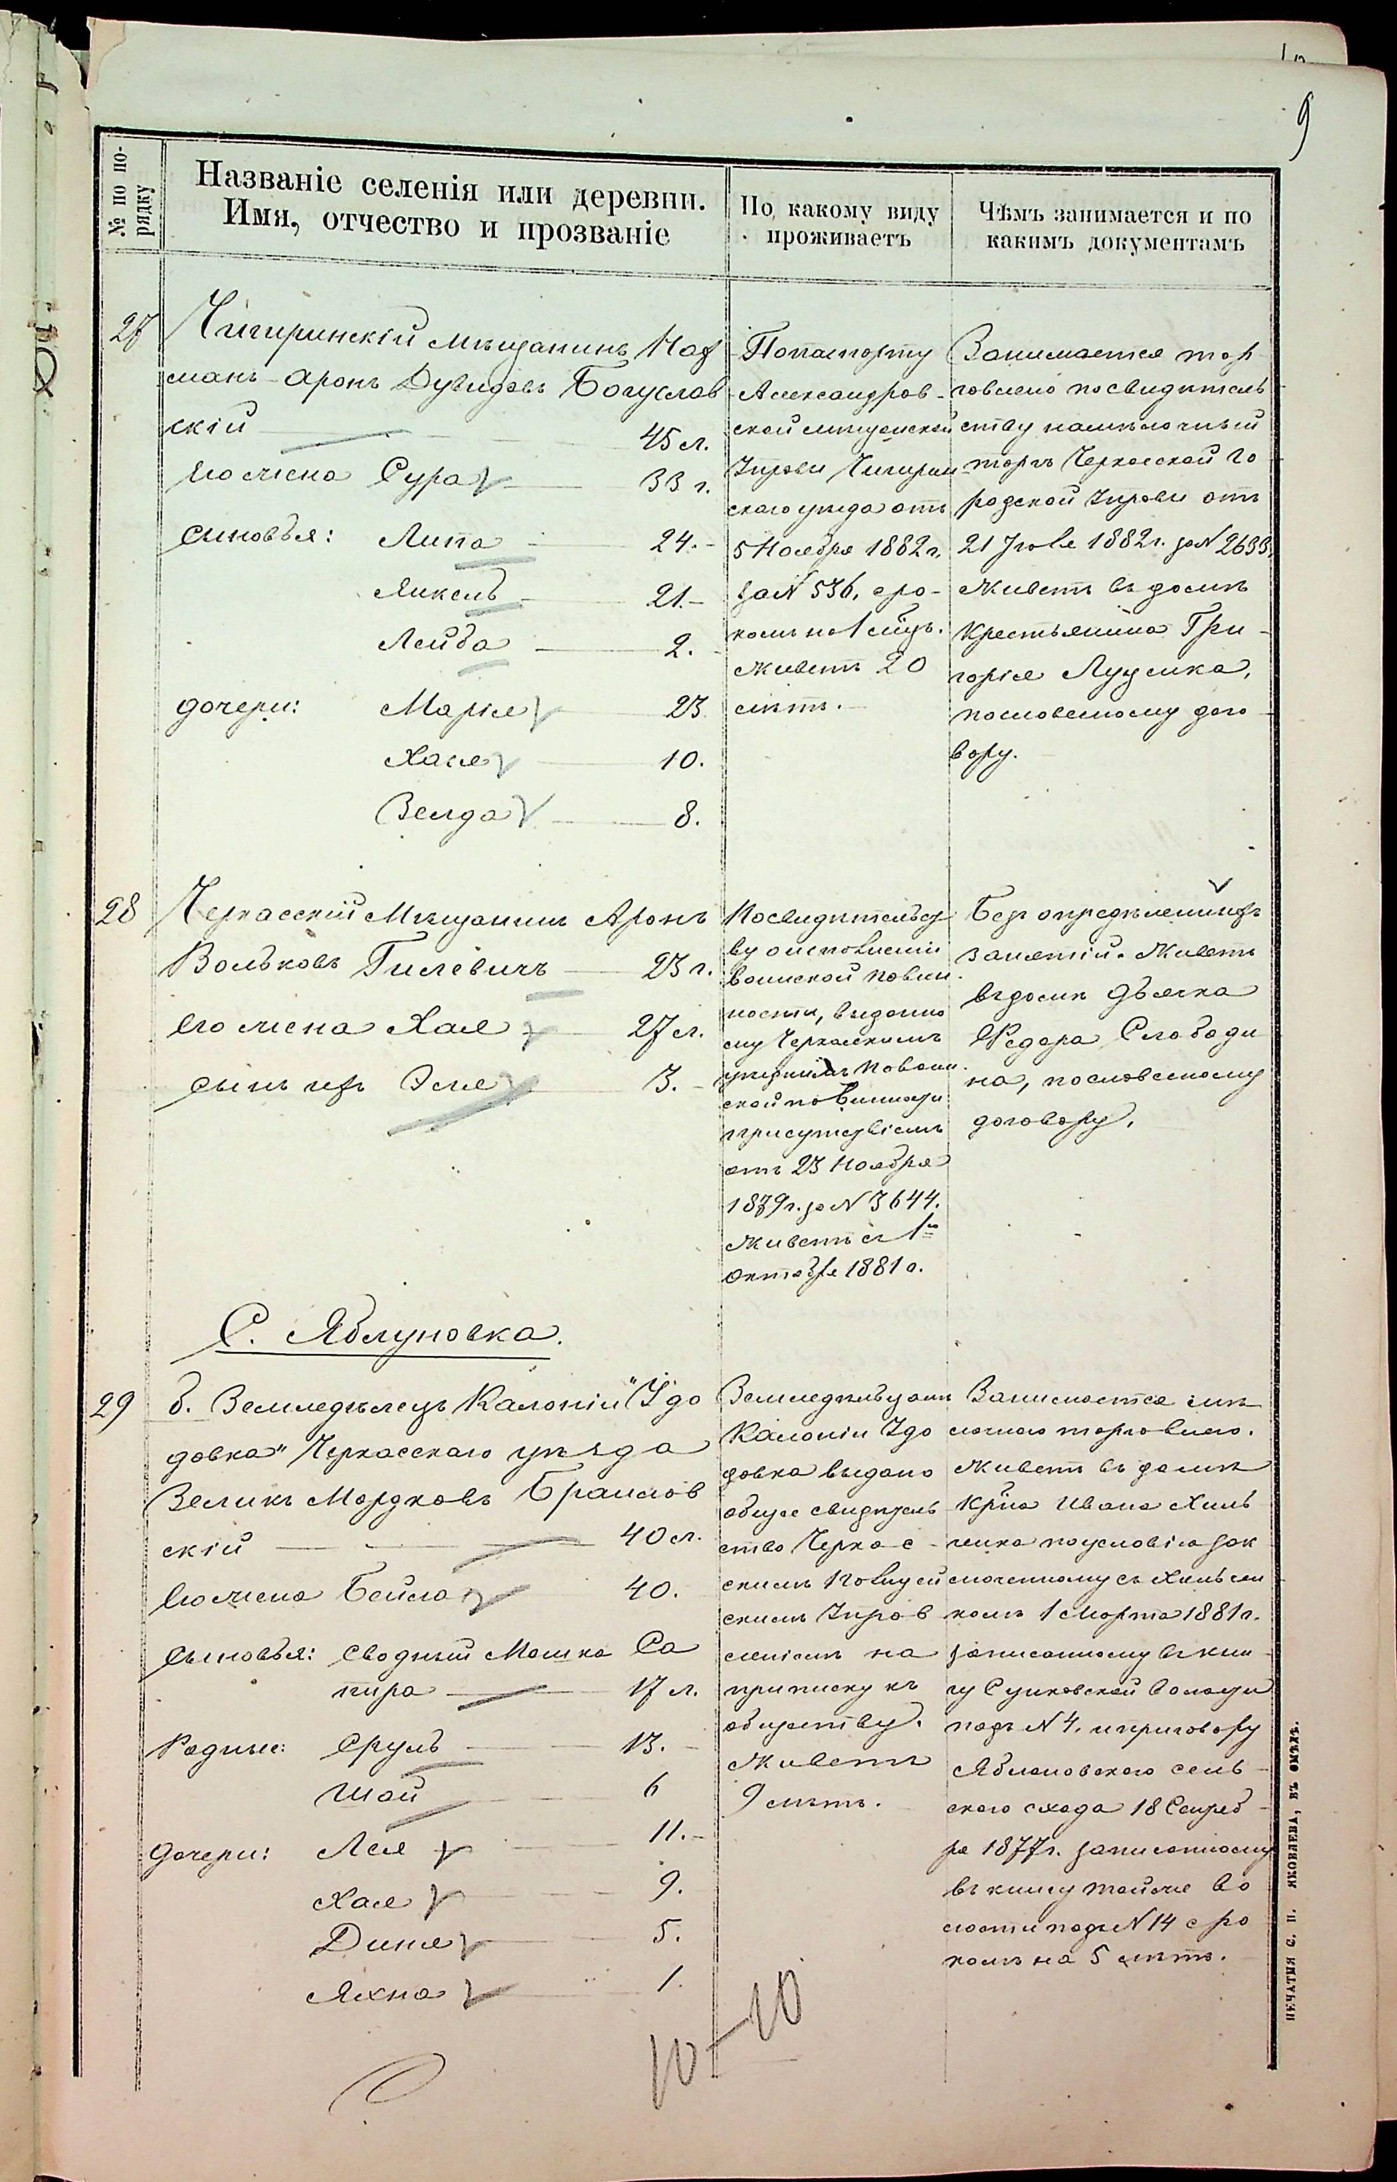 9
№ по по-
рядку
Названіе селенія или деревни.
Имя, отчество и прозваніе
По какому виду
проживаетъ
Чѣмъ занимается и по
какимъ документамъ
27
Чигиринскій мѣщанинъ Нах
манъ-Аронъ Дувидовъ Богуслав
скій 45 л.
Его жена Сура 33 г.
Сыновья: Липа 24.
Янкель 21.
Лейба 2.
дочери: Марія 23
Хана 10.
Зелда 8.
По паспорту
Александров-
ской мѣщанской
Управы Чигирин
скаго уѣзда отъ
5 Ноября 1882 г.
за № 536, сро-
комъ на 1 мѣць.
Живетъ 20
лѣтъ.
Занимается тор
говлею по свидѣтель
ству на мелочный
торгъ Черкасской Го
родской Управы отъ
21 Іюля 1882 г. за № 2633,
Живетъ въ домѣ
крестьянина Гри-
горія Луценка,
по словесному дого-
вору.
28
Черкасскій Мѣщанинъ Аронъ
Вольковъ Гилевичъ 23 г.
Его жена Хая 27 л.
Сынъ ихъ Эля 3.
По свидѣтельст
ву о исполненіи
воинской повин
ности, выданно
му Черкасскимъ
уѣзднымъ по воин
ской повинности
присутствіемъ
отъ 23 Ноября
1879 г. за № 3644.
Живетъ съ 1го
Октября 1881 г.
Безъ опредѣленныхъ
занятій. Живетъ
въ домѣ дьячка
Ѳедора Слободи
на, по словесному
договору.
С. Яблуновка.
29
б. Земледѣлецъ Калоніи "Удо
довка" Черкасскаго уѣзда
Зеликъ Мордковъ Браилов
скій 40 л.
Его жена Бейла 40.
Сыновья: сводный Мошко Са
пира 17 л.
Родные: Сруль 13.
Шай 6
Дочери: Лея 11.
Хая 9.
Диня 5.
Яхна 1.
Земледѣльцамъ
Калоніи Удо
довка выдано
общее свидѣтель
ство Черкас-
скимъ Полицей
скимъ Управ
леніемъ на
приписку къ
обществу.
Живетъ
9 лѣтъ.
Занимается ме
лочною торговлею.
Живетъ въ домѣ
Крна Ивана Хиль
ченка по условію зак
люченному съ Хильчен
комъ 1 Марта 1881 г.
записанному въ кни-
гу Сунковской волости
подъ № 4. и приговору
Яблоновскаго сель-
скаго схода 18 Сентяб-
ря 1877 г. записанному
въ книгу той же во
лости подъ № 14 сро
комъ на 5 лѣтъ.
10-10
ПЕЧАТНЯ С. П. ЯКОВЛЕВА, ВЪ СМѢЛѢ.